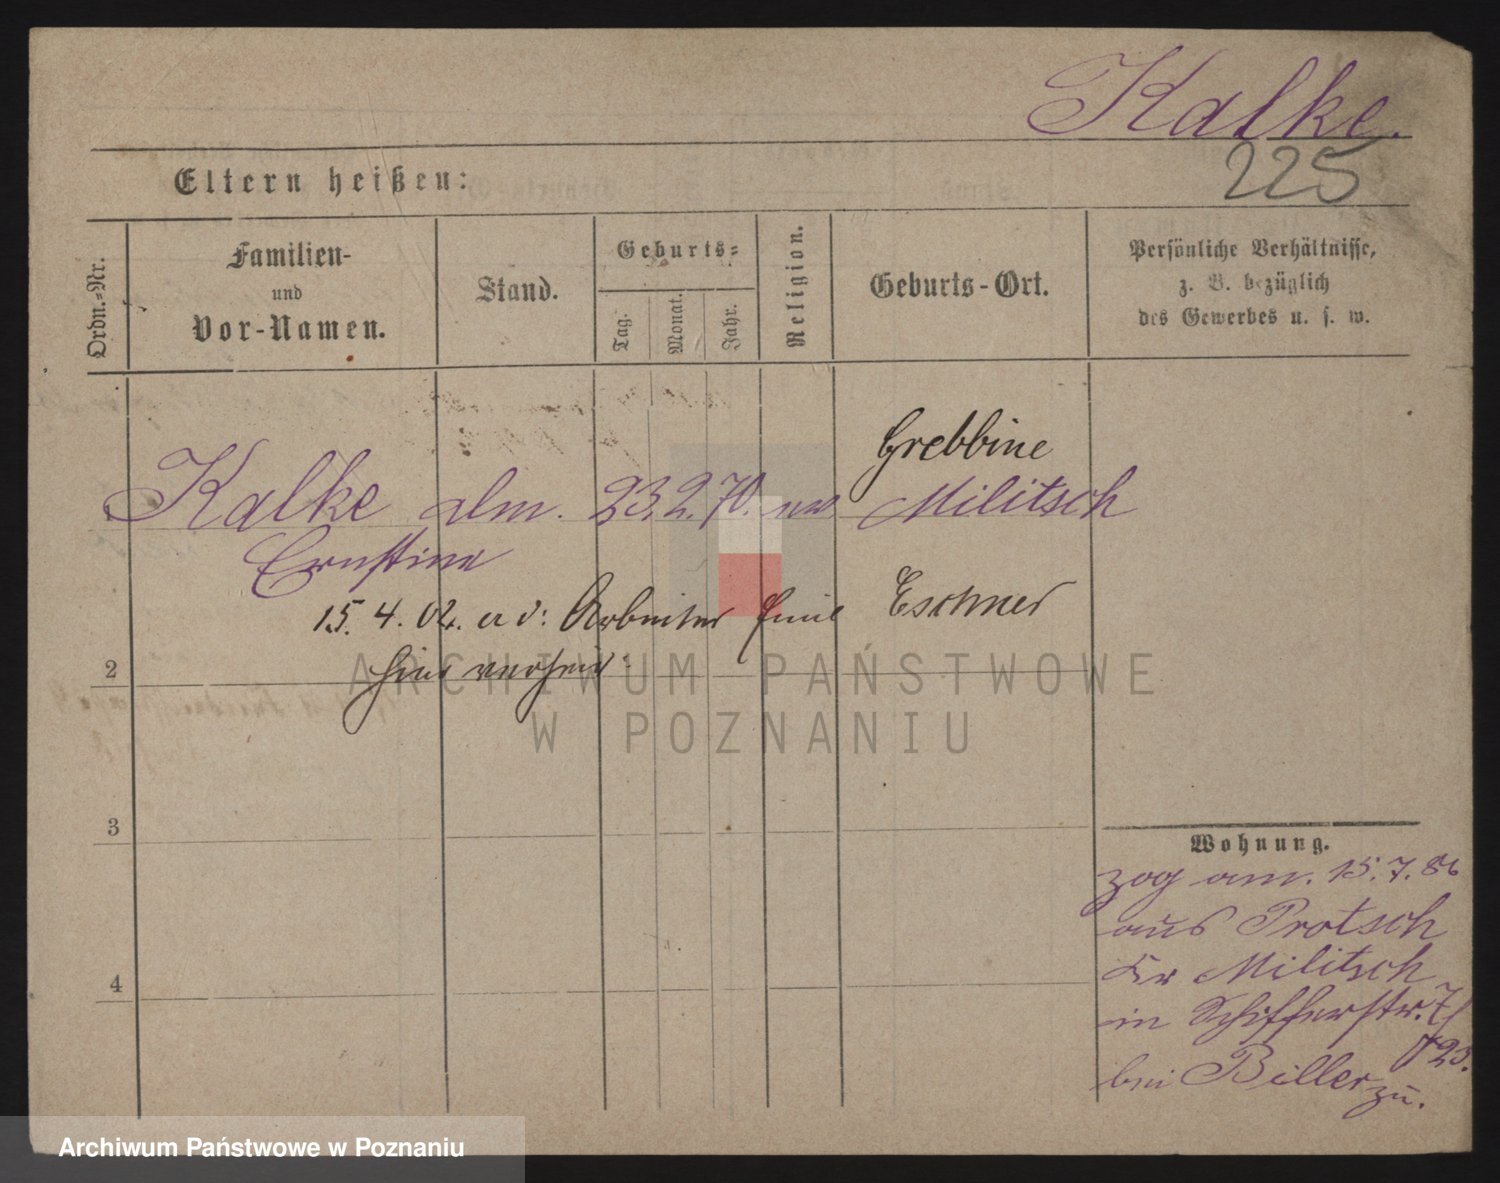 Kalke.
225
Eltern heißen:
Ordn.-Nr.
Familien-
und
Vor-Namen.
Stand.
Geburts-
Tag.
Monat.
Jahr.
Religion.
Geburts-Ort.
Persönliche Verhältnisse,
z. B. bezüglich
des Gewerbes u. s. w.
Grebline
Kalke 23. 2. 70. Militsch
Ernstine
15. 4. 02. Arbeiter Emil Eschner
hier
2
3
4
Wohnung.
zog am. 15. 7. 86
aus Protsch
Kr Militsch
in Schifferstr.
bei Biller zu.
ARCHIWUM PAŃSTWOWE
W POZNANIU
Archiwum Państwowe w Poznaniu